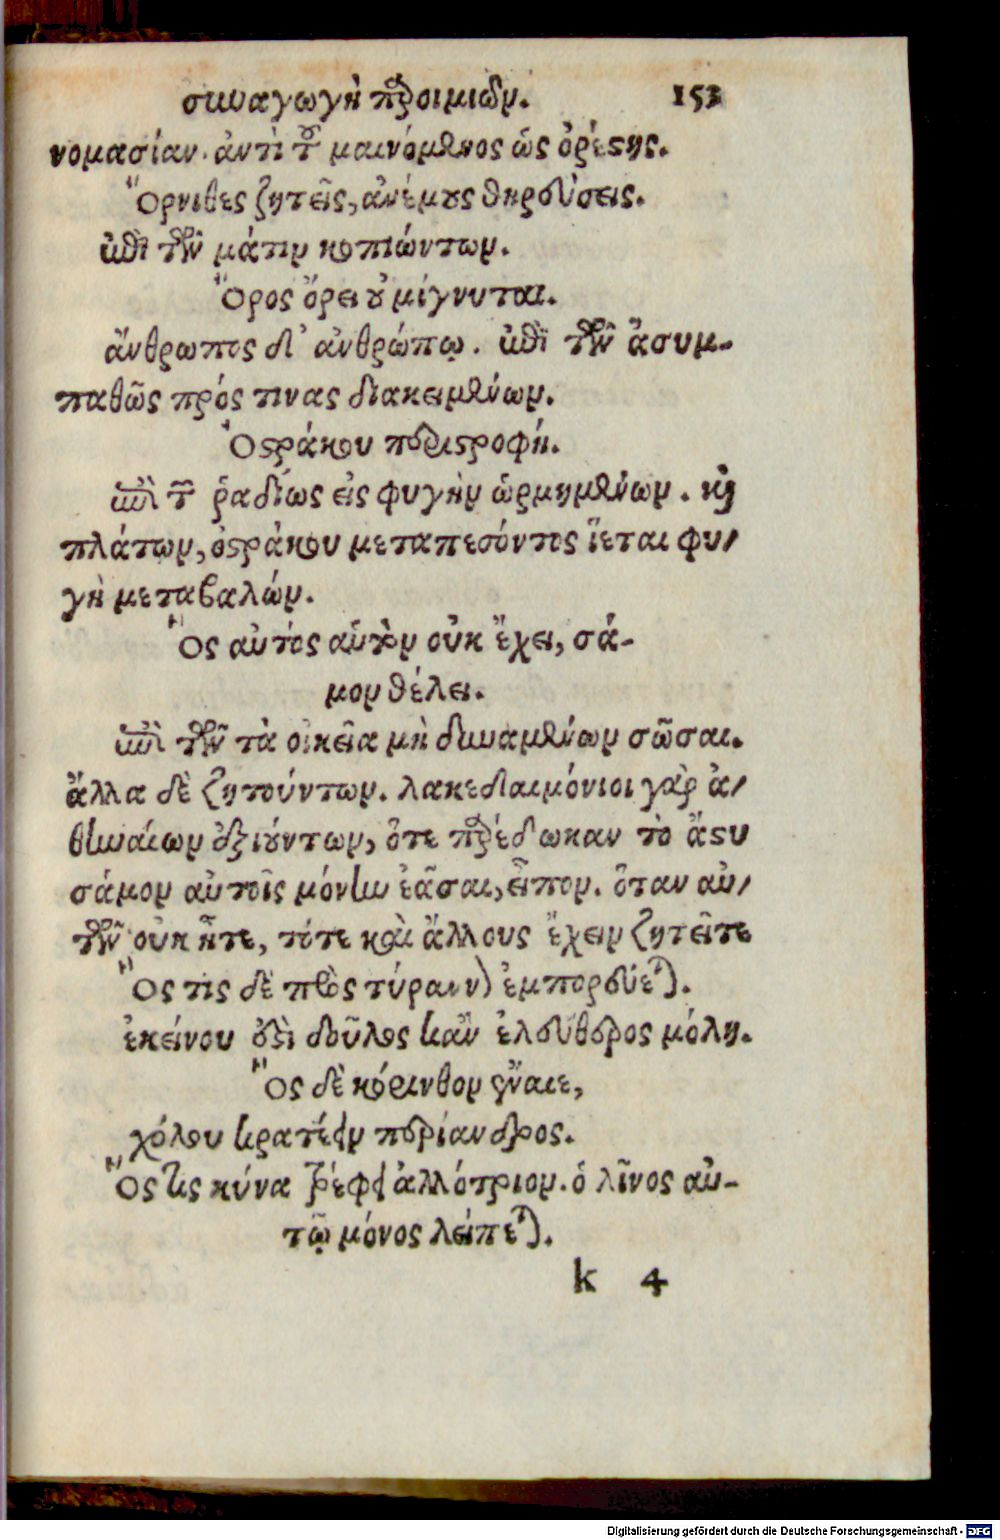 συναγωγὴ παροιμιῶν. 153
νομασίαν. ἀντὶ τοῦ μαινόμενος ὡς ὀρέστης.
Ὄρνιθες ζητεῖς, ἀνέμους θηρεύσεις.
ἐπὶ τῶν μάτην κοπιώντων.
Ὄρος ὄρει οὐ μίγνυται.
ἄνθρωπος δ' ἀνθρώπῳ. ἐπὶ τῶν ἀσυμ-
παθῶς πρός τινας διακειμένων.
Ὀστράκου περιστροφή.
ἐπὶ τῶν ῥαδίως εἰς φυγὴν ὡρμημένων. καὶ
πλάτων, ὀστράκου μεταπεσόντος ἵεται φυ/
γῇ μεταβαλών.
Ὃς αὐτὸς αὑτὸν οὐκ ἔχει, σά-
μον θέλει.
ἐπὶ τῶν τὰ οἰκεῖα μὴ δυναμένων σῶσαι.
ἄλλα δὲ ζητούντων. λακεδαιμόνιοι γὰρ ἀ/
θηναίων ἀξιούντων, ὅτε παρέδωκαν τὸ ἄστυ
σάμον αὐτοῖς μόνην ἐᾶσαι, εἶπον. ὅταν αὑ/
τῶν οὐκ ἦτε, τότε καὶ ἄλλους ἔχειν ζητεῖτε
Ὅς τις δὲ πρὸς τύραννον ἐμπορεύεται.
ἐκείνου ἐστὶ δοῦλος κἂν ἐλεύθερος μόλῃ.
Ὃς δὲ κόρινθον ἔναιε,
χόλου κρατέειν περίανδρος.
Ὅς τις κύνα τρέφει ἀλλότριον. ὁ λῖνος αὐ-
τῷ μόνος λείπεται.
k 4
Digitalisierung gefördert durch die Deutsche Forschungsgemeinschaft - DFG